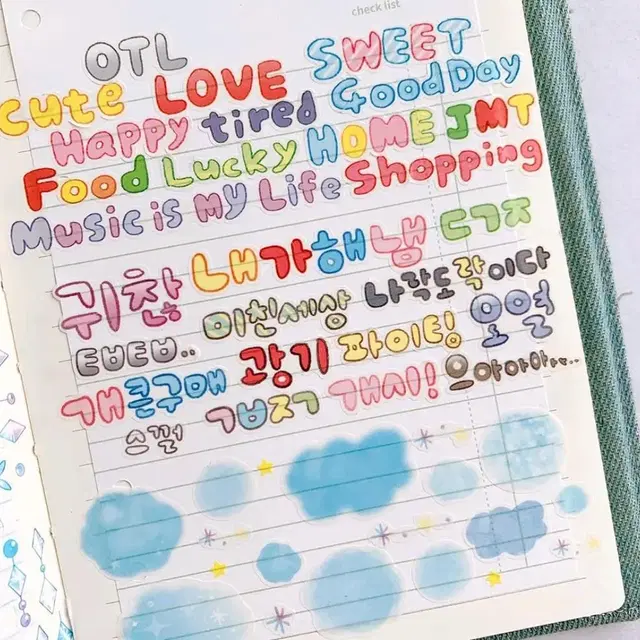 check list
OTL SWEET
Cute LOVE Good Day
Happy tired HOME JMT
Food Lucky Shopping
Music is my Life
귀찮 내가해냄 ㄷㄱㅈ
미친세상 나락도락이다
ㅌㅂㅌㅂ.. 광기 파이팅 오열
개큰구매 개시!
스껄 ㄱㅂㅈㄱ